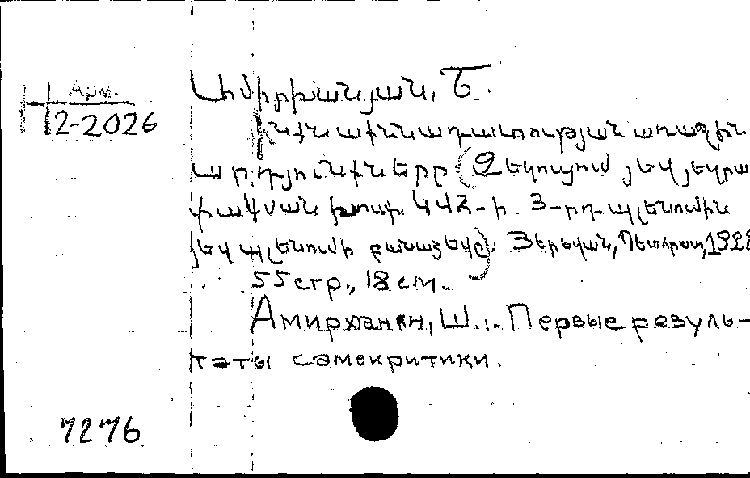 Арм.
Н 12-2026
Ամիրխանյան, Շ.
Ինքնաքննադատության առաջին
արդյունքները (Զեկուցում յեվ յեզրա
փակման խոսք ԿՎՀ-ի 3-րդ պլենումին
յեվ պլենումի բանաձեվը). Յերեվան, Պետհրատ, 1928
55 стр., 18 см.
Амирханян, Ш.: Первые резуль-
таты самокритики.
7276